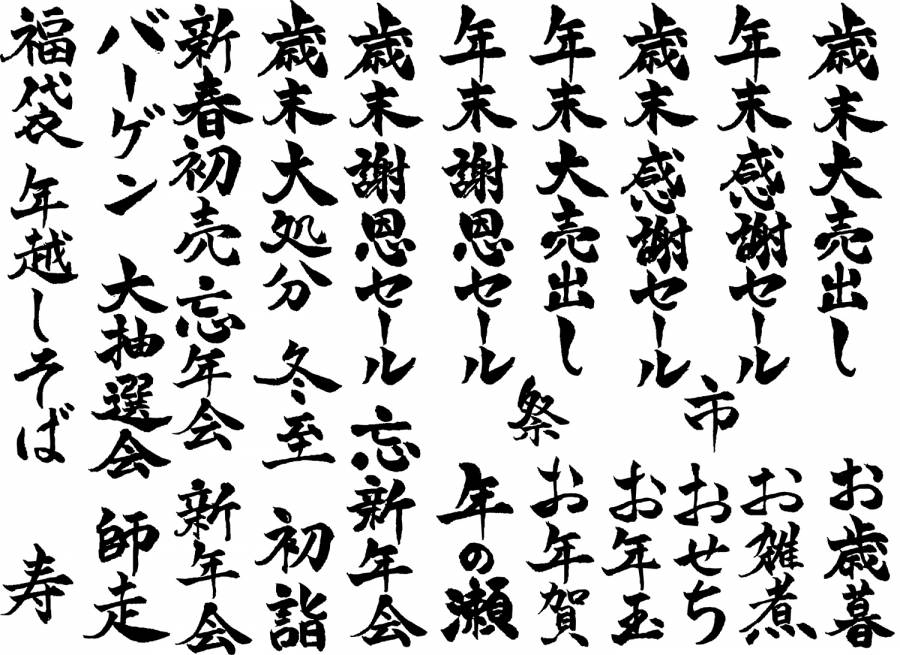 歳末大売出し
年末感謝セール
歳末感謝セール
年末大売出し
年末謝恩セール
歳末謝恩セール
歳末大処分
新春初売
バーゲン
福袋
市
祭
お歳暮
お雑煮
おせち
お年玉
お年賀
年の瀬
忘新年会
冬至
初詣
忘年会
新年会
大抽選会
師走
年越しそば
寿